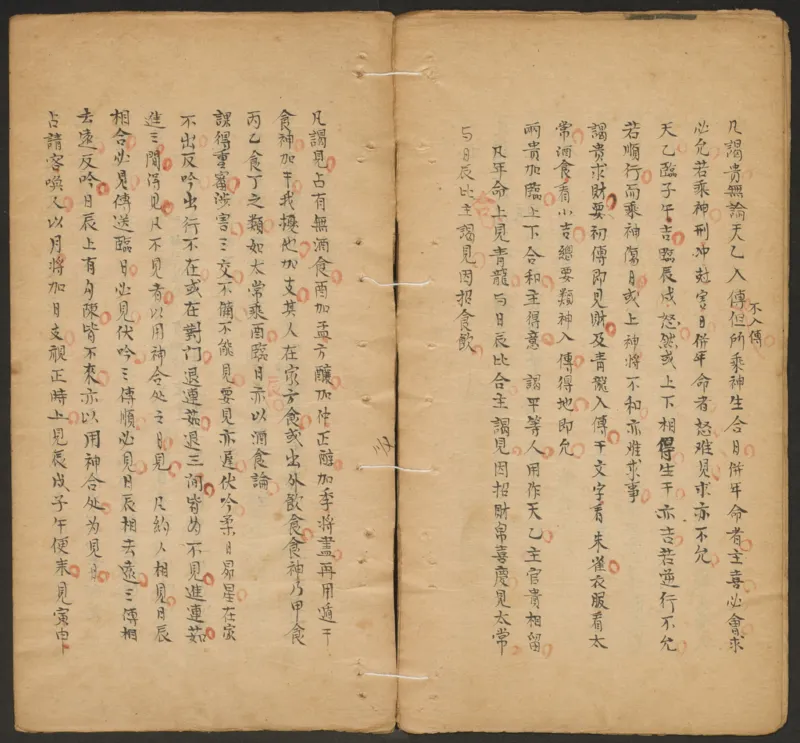 凡謁貴無論天乙入傳不入傳但所乘神生合日併年命者主喜必會求
必允若乘神刑冲尅害日併年命者怒难見求亦不允
天乙臨子午吉臨辰戌怒然或上下相得生干亦吉若逆行不允
若順行而乘神傷日或上神將不和亦难求事
謁貴求財要初傳即見財及青龍入傳干文字看朱雀衣服看太
常酒食看小吉總要類神入傳得地即允
兩貴加臨上下合和主得意 謁平等人用作天乙主官貴相留
凡年命上見青龍与日辰比合主謁見因招財帛喜慶見太常
与日辰比主謁見因招食飲
凡謁見占有無酒食酉加孟方釀加仲正醉加季將盡再用遁干
食神加干我擾他加支其人在家方食或出外飲食食神乃甲食
丙乙食丁之類如太常乘酉臨日亦以酒食論
課得重審涉害三交不備不能見要見亦遲伏吟柔日昴星在家
不出反吟出行不在或在對門退連茹退三间皆为不見進連茹
進三間得見凡不見者以用神合处之日見 凡約人相見日辰
相合必見傳送臨日必見伏吟三傳順必見日辰相去遠三傳相
去遠反吟日辰上有勾陳皆不來亦以用神合处为見日
占請客喚人以月將加日支視正時上見辰戌子午便來見寅申